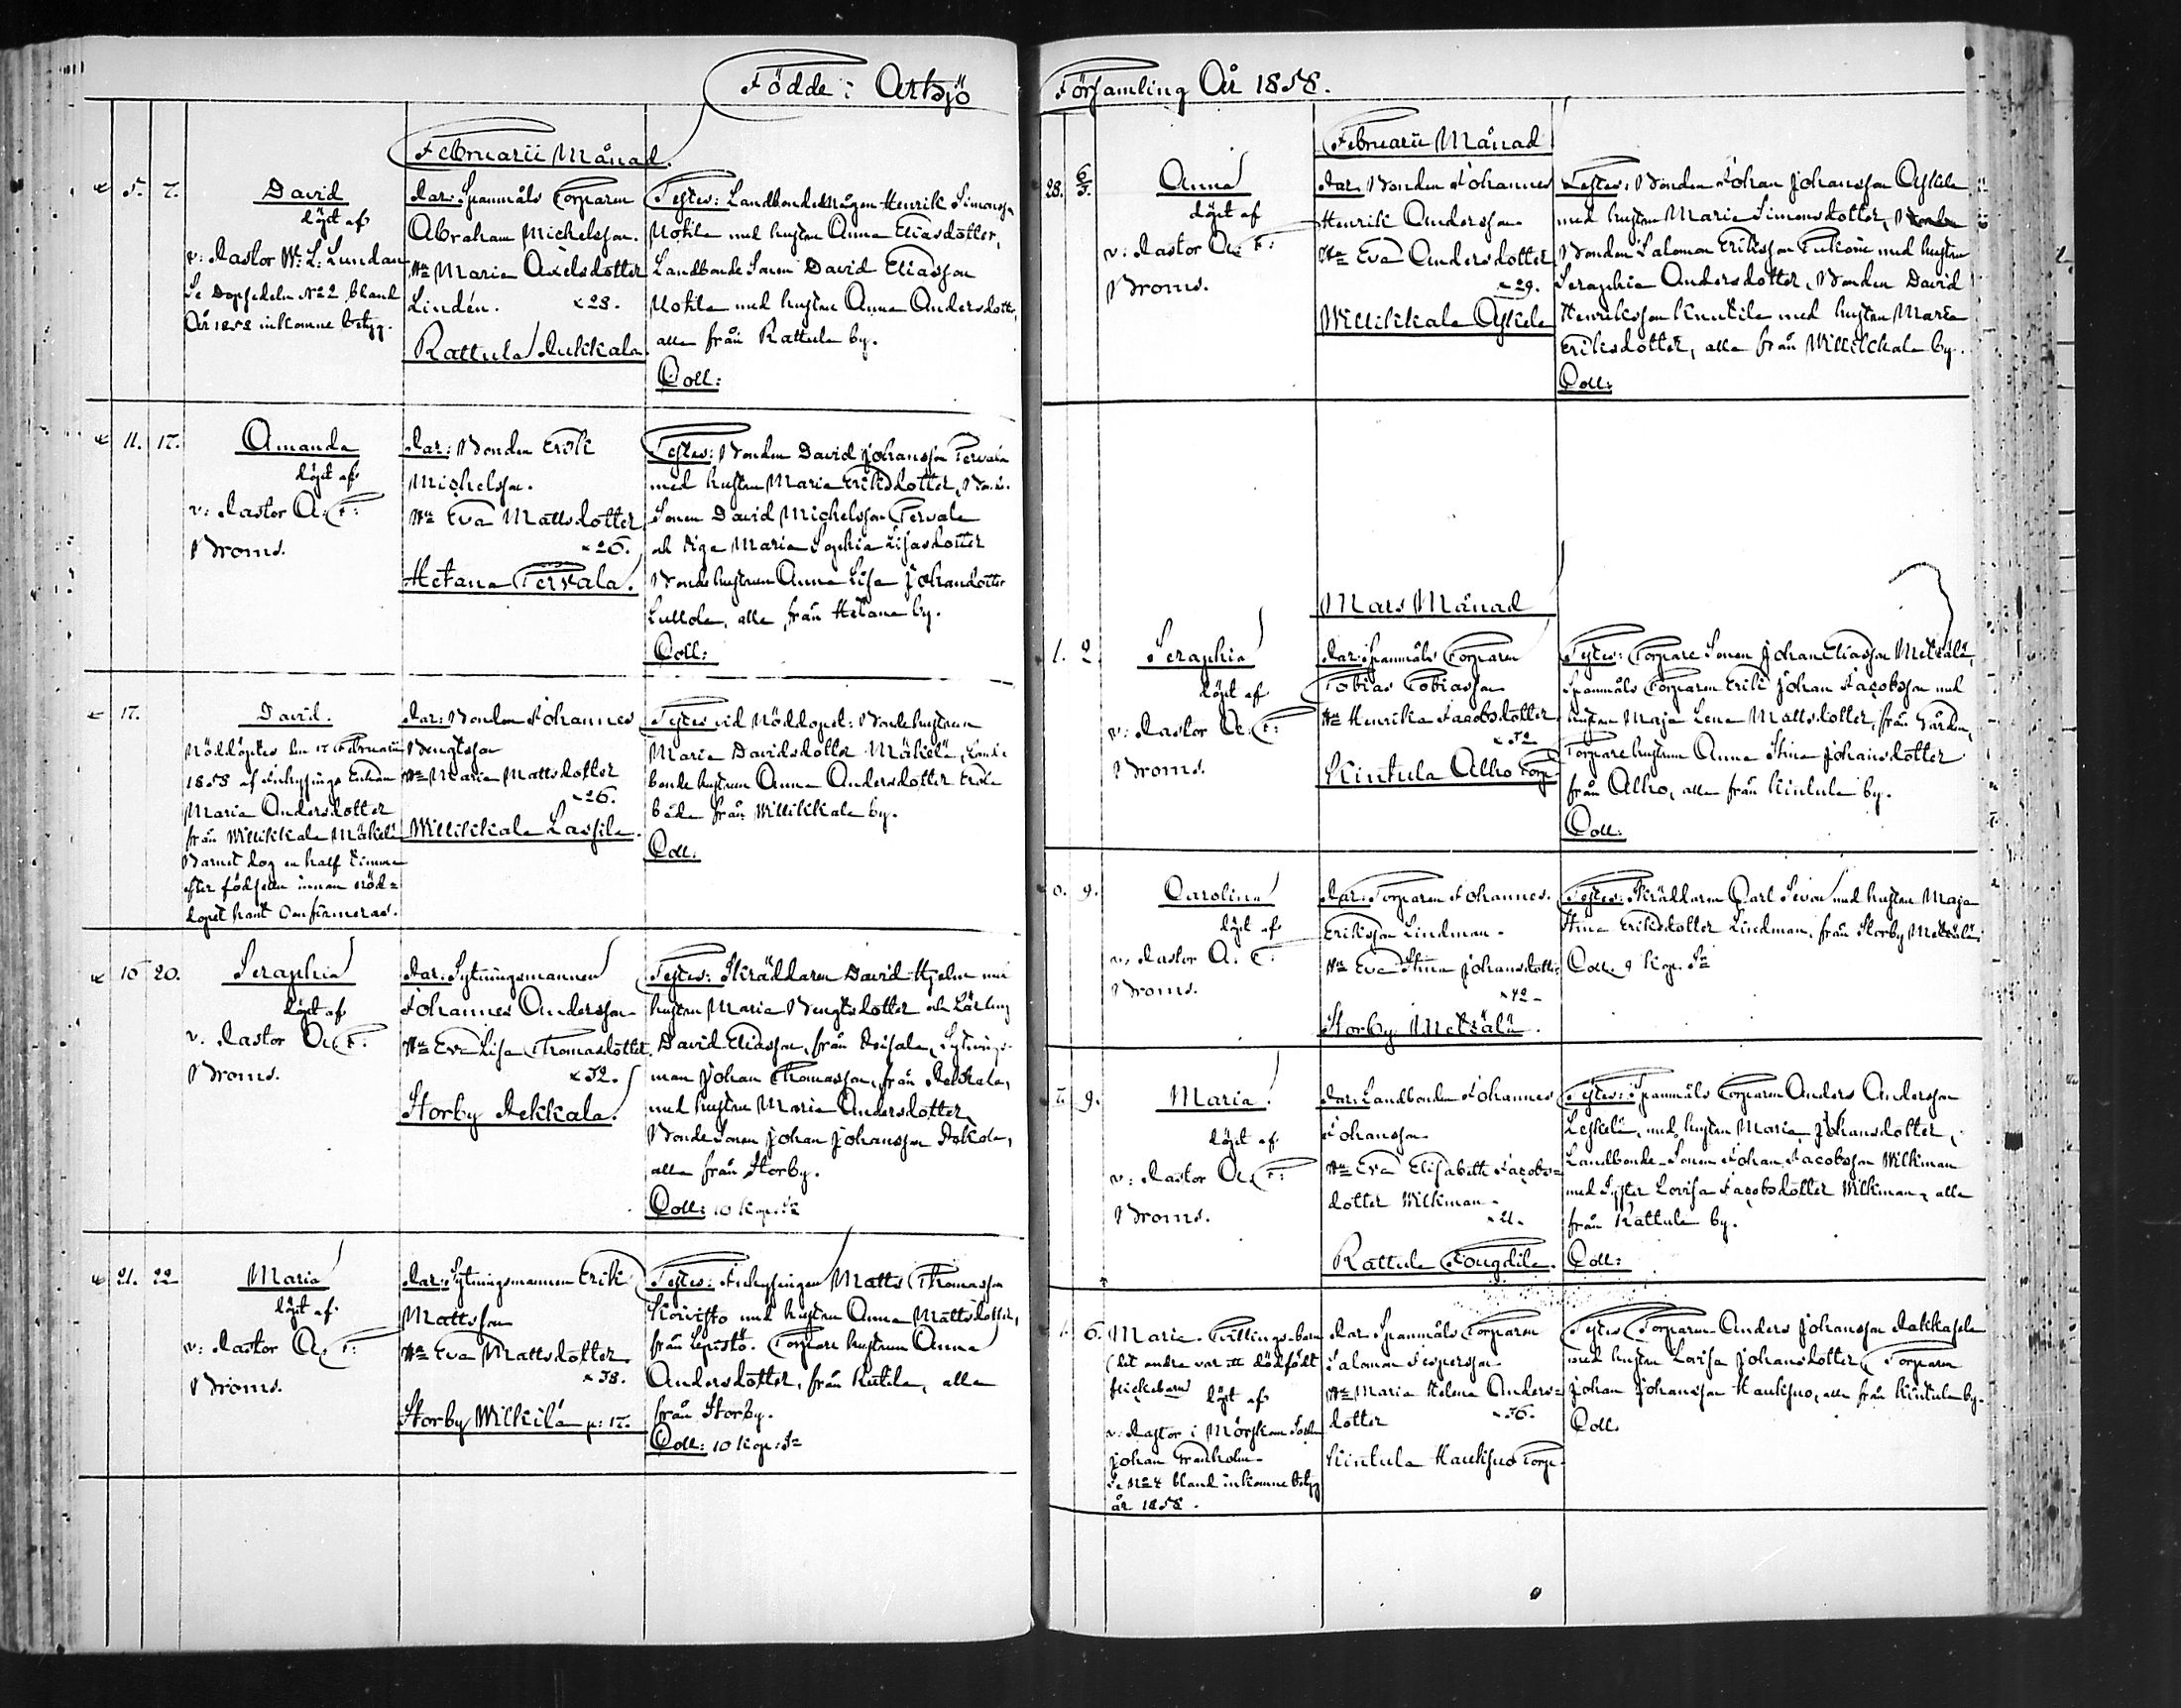 Födde i Artsjö
Februarii Månad.
5. 7.
David
döpt af
v: Pastor W: L: Lundan
Se Dopsedeln No 2 bland
År 1858 inkomne betyg.
Par: Spannmåls Torparen
Abraham Michelsson.
Hu Maria Axelsdotter
Lindén. 28.
Rattula Pukkala.
Testes: Landbonde Henrik Simonss.
Uotila med hustru Anna Eliasdotter,
Landbonde Sonen David Eliasson
Uotila med hustru Anna Andersdotter,
alla från Rattula by.
Coll:
11. 17.
Amanda
döpt af
v: Pastor A: F:
Broms.
Par: Bonden Erik
Michelsson.
Hu Eva Mattsdotter
26.
Hetana Tervala.
Testes: Bonden David Johansson Tervala
med hustru Maria Eriksdotter,
Sonen David Michelsson Tervala
och Piga Maria Sophia
Bondehustrun Anna Lisa Johansdotter
alla från Hetana by.
Coll:
17.
David.
Nöddöptes den 17 Februarii
1858 af Inhysings Enkan
Maria Andersdotter
från Willikkala Mäkelä
Barnet dog en half timme
efter födseln innan nöd=
dopet hant Confirmeras.
Par: Bonden Johannes
Bengtsson
Hu Maria Mattsdotter
26.
Willikkala Lassila.
Testes vid Nöddopet: Bondehustrun
Maria Davidsdotter Mäkelä, Land=
bonde hustrun Anna Andersdotter
båda från Willikkala by.
Coll:
16 20.
Seraphia
döpt af
v: Pastor A: F:
Broms.
Par: Sytningsmannen
Johannes Andersson
Hu Eva Lisa Thomasdotter.
32.
Storby Pekkala.
Testes: Skräddaren David Hjelm med
hustru Maria Bengtsdotter och Lärling
David Eliasson, från Sytnings=
man Johan Thomasson, från Pekkala,
med hustru Maria Andersdotter,
Bonde Sonen Johan Johansson
alla från Storby.
Coll: 10 Kop: Sr
21. 22
Maria
döpt af
v: Pastor A: F:
Broms.
Par: Sytningsmannen Erik
Mattsson
Hu Eva Mattsdotter.
38.
Storby Wilkilä
Testes: Inhysingen Matts Thomasson
Koivisto med hustru Anna Mattsdotter,
från Lepistö. Torpare hustrun Anna
Andersdotter, från alla
från Storby.
Coll: 10 Kop: Sr
Församling År 1858.
Februarii Månad
28. 6/3.
Anna
döpt af
v: Pastor A: F:
Broms.
Par: Bonden Johannes
Henrik Andersson
Hu Eva Andersdotter
29.
Willikkala Askela
Testes: Bonden Johan Johansson Askela
med hustru Maria Simonsdotter,
Bonden Salomon Eriksson med hustru
Seraphia Andersdotter, Bonden David
Henriksson Knutila med hustru Maria
Eriksdotter, alla från Willikkala by.
Coll:
Mars Månad
1. 2
Seraphia
döpt af
v: Pastor A: F:
Broms.
Par: Spannmåls Torparen
Tobias Tobiasson
Hu Henrika Jacobsdotter
32
Kintula Alho Torp
Testes: Torpare Sonen Johan Eliasson Metsälä,
Spannmåls Torparen Erik Johan Jacobsson med
hustru Maja Lena Mattsdotter, från Gården,
Torpare hustrun Anna Stina Johansdotter
från Alho, alla från Kintula by.
Coll:
9.
Carolina
döpt af
v. Pastor A. F:
Broms.
Par: Torparen Johannes
Eriksson Lindman.
Hu Eva Stina Johansdotter
42
Storby Metsälä.
Testes: Skräddaren Carl med hustru Maja
Stina Eriksdotter Lindman, från Storby Metsälä.
Coll. 9 Kop. Sr
9.
Maria
döpt af
v: Pastor A: F:
Broms.
Par: Landbonden Johannes
Johansson
Hu Eva Elisabeth Jacobs=
dotter Wilkman
21.
Rattula Fougdila.
Testes: Spannmåls Torparen Anders Andersson
med hustru Maria Johansdotter,
Landbonde-Sonen Johan Jacobsson Wilkman
med Syster Lovisa Jacobsdotter Wilkman, alla
från Rattula by.
Coll:
6.
Maria. Tvillings-barn
(det andra var ett dödfödt
flickebarn
döpt af
v: Pastor i Mörskom
Johan Granholm.
Se No 4 bland inkomne betyg
år 1858.
Par: Spannmåls Torparen
Salomon Jespersson.
Hu Maria Helena Anders=
dotter 36.
Kintula Haukisuo Torp.
Testes Torparen Anders Johansson
med hustru Lovisa Johansdotter, Torparen
Johan Johansson Haukisuo, alla från Kintula by.
Coll.